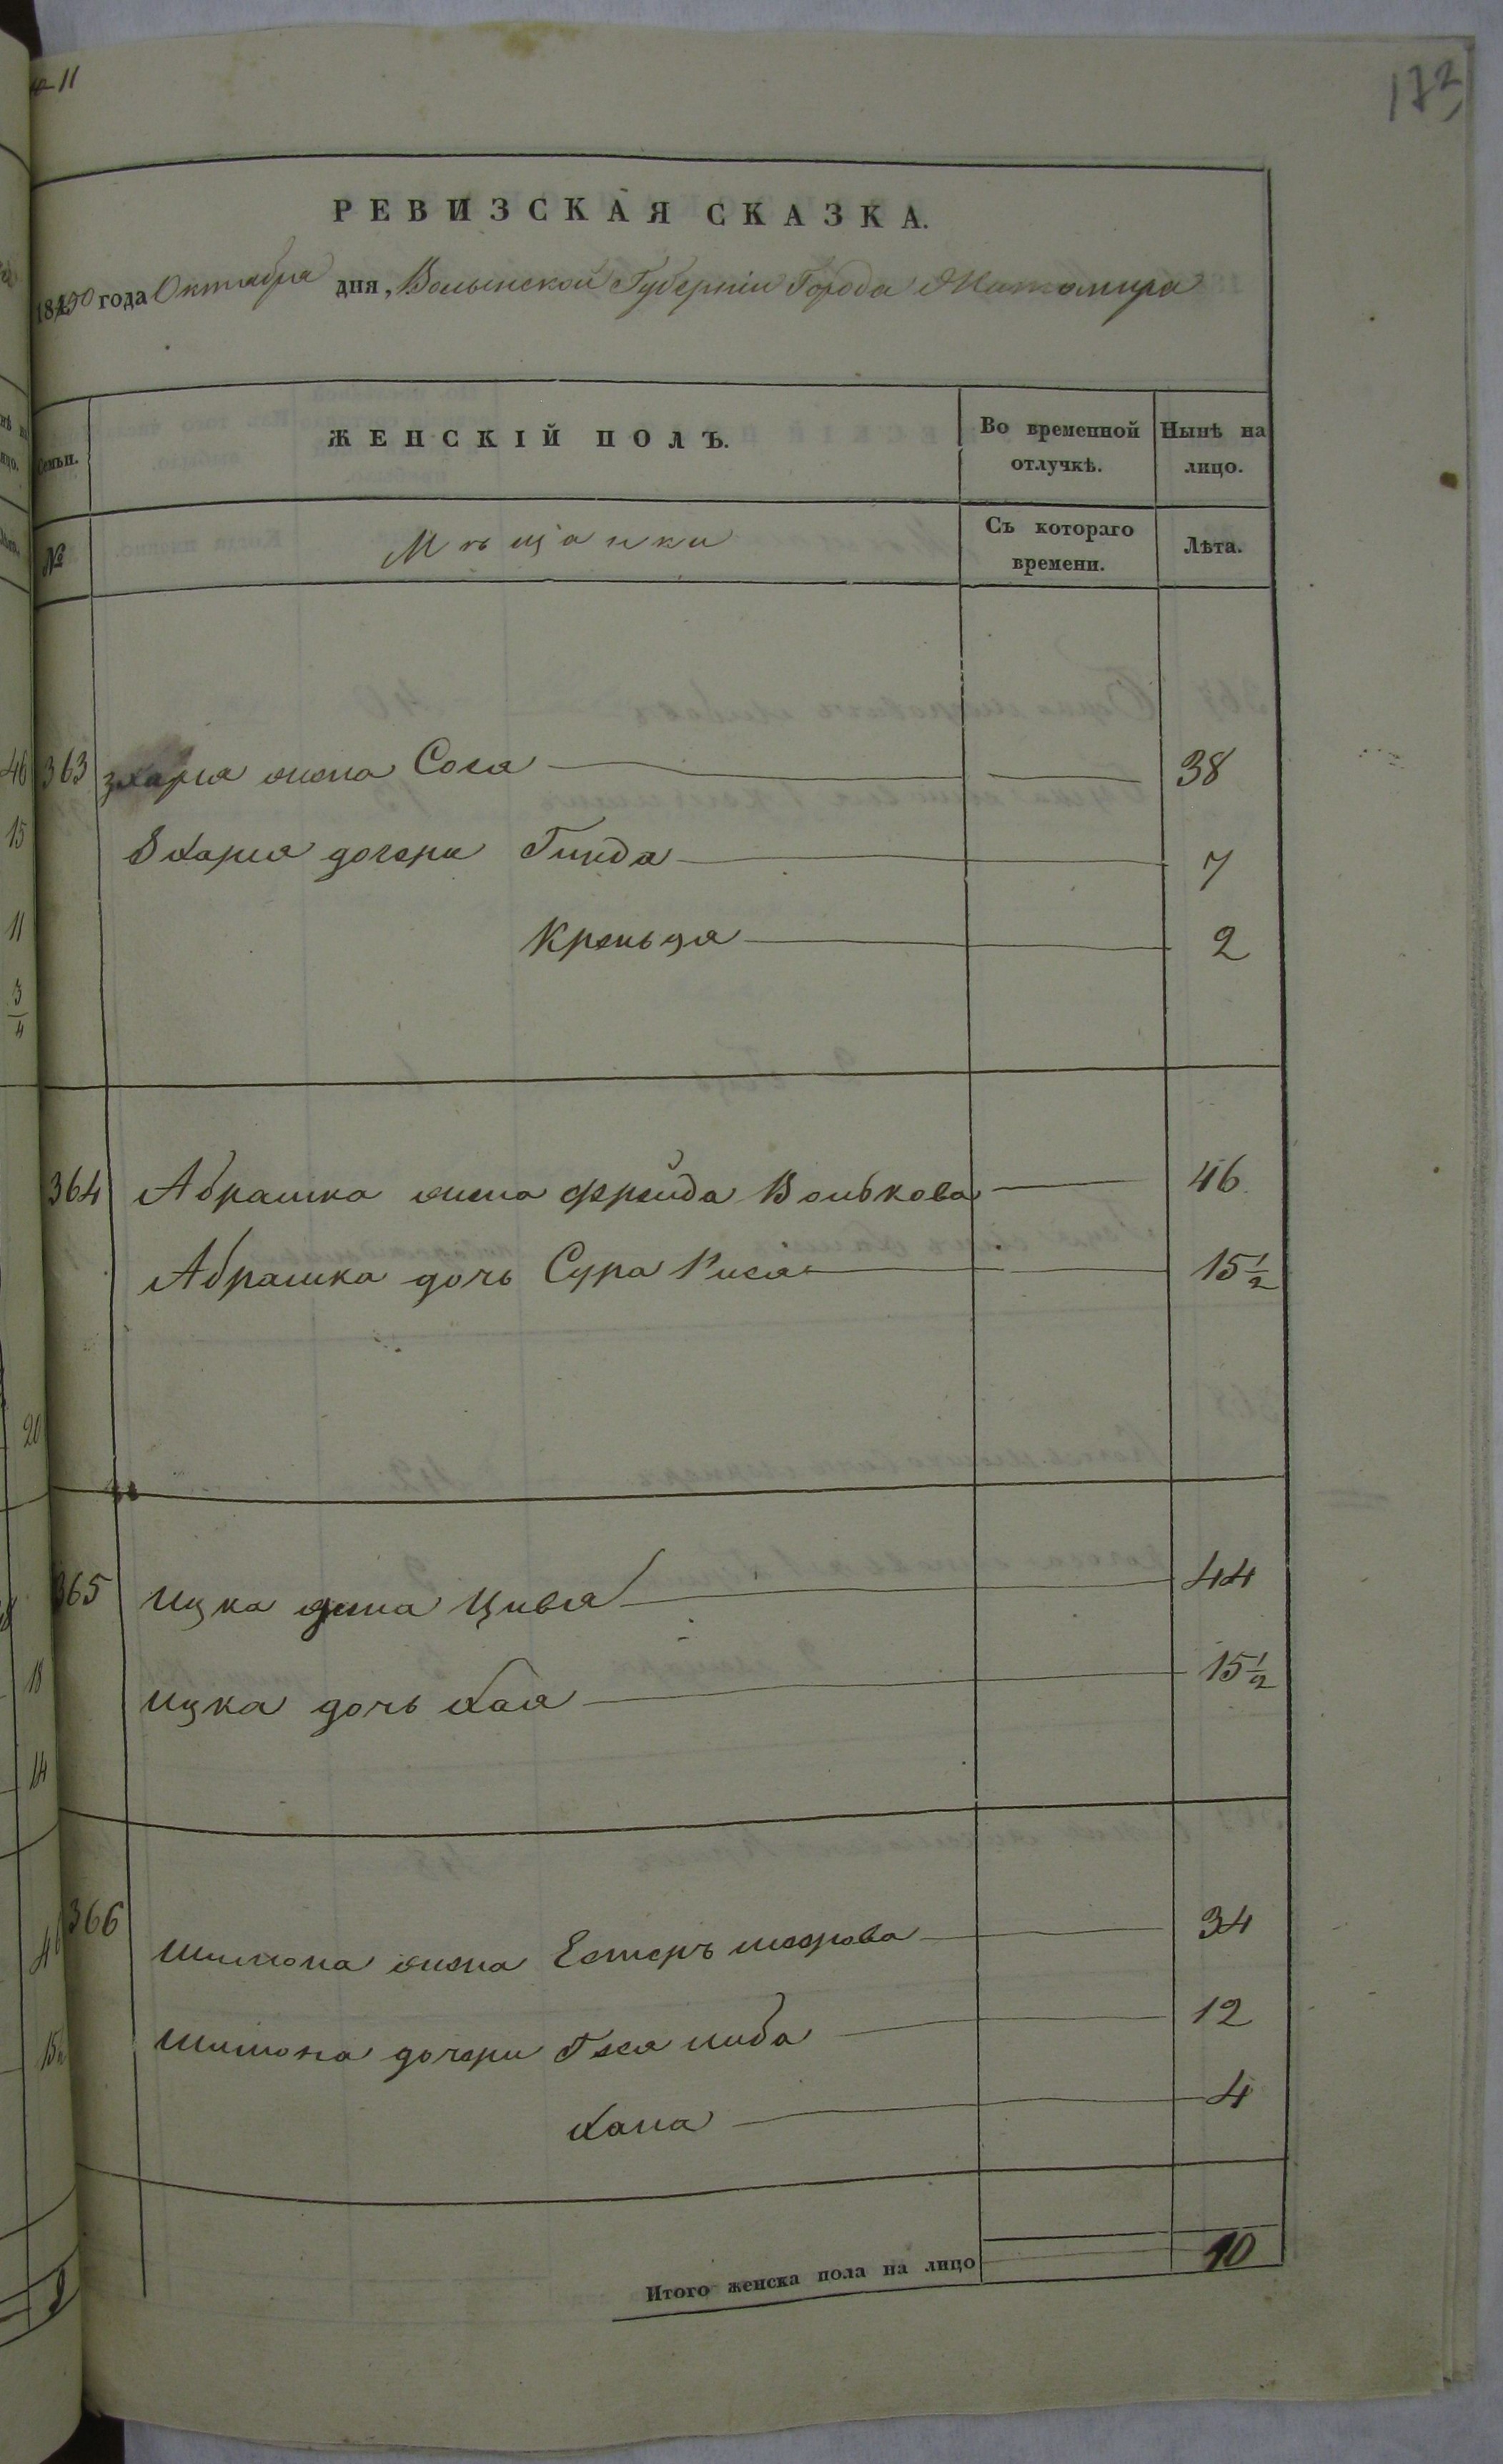 11
172
РЕВИЗСКАЯ СКАЗКА.
1850 года Октября дня, Волынской Губерніи Города Житомира
Семьи. ЖЕНСКІЙ ПОЛЪ. Во временной отлучкѣ. Нынѣ на лицо.
№ Мѣщанки Съ котораго времени. Лѣта.
363 Зхарія жена Сося 38
Зхарія дочери Гинда 7
Крейнця 2
364 Абрашка жена Фрейда Волькова 46
Абрашка дочь Сура Рися 15½
365 Ицка жена Цивья 44
Ицка дочь Хая 15½
366 Шимона жена Естеръ 34
Шимона дочери Геся Либа 12
Хана 4
Итого женска пола на лицо 10